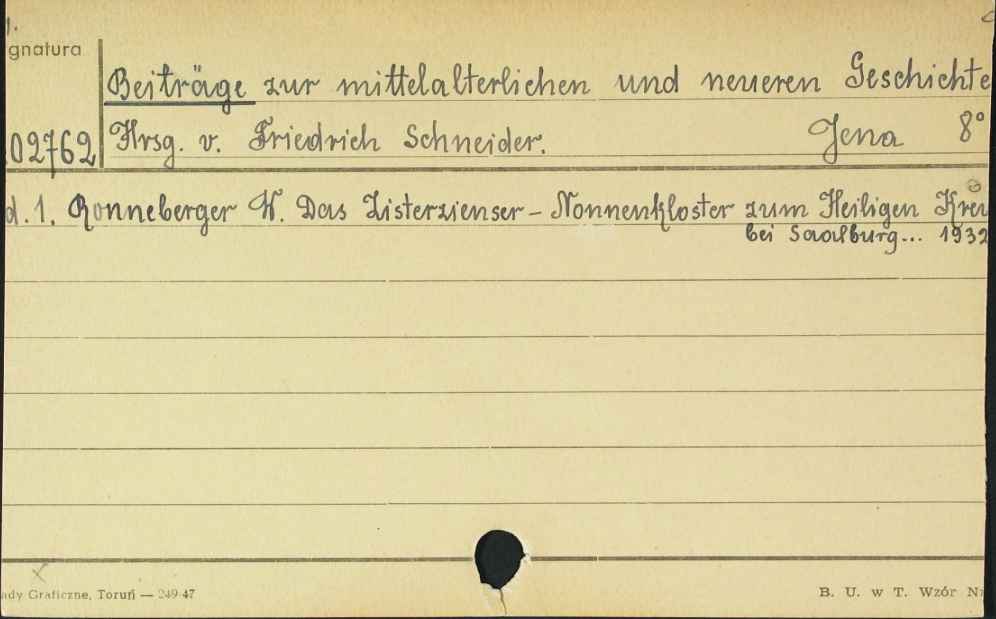 gnatura
Beiträge zur mittelalterlichen und neueren Geschichte
02762 Hrsg. v. Friedrich Schneider. Jena 8°
d. 1. Ronneberger W. Das Zisterzienser - Nonnenkloster zum Heiligen Kreu
bei Saalburg... 1932
ady Graficzne, Toruń — 249 47 B. U. w T. Wzór Nr